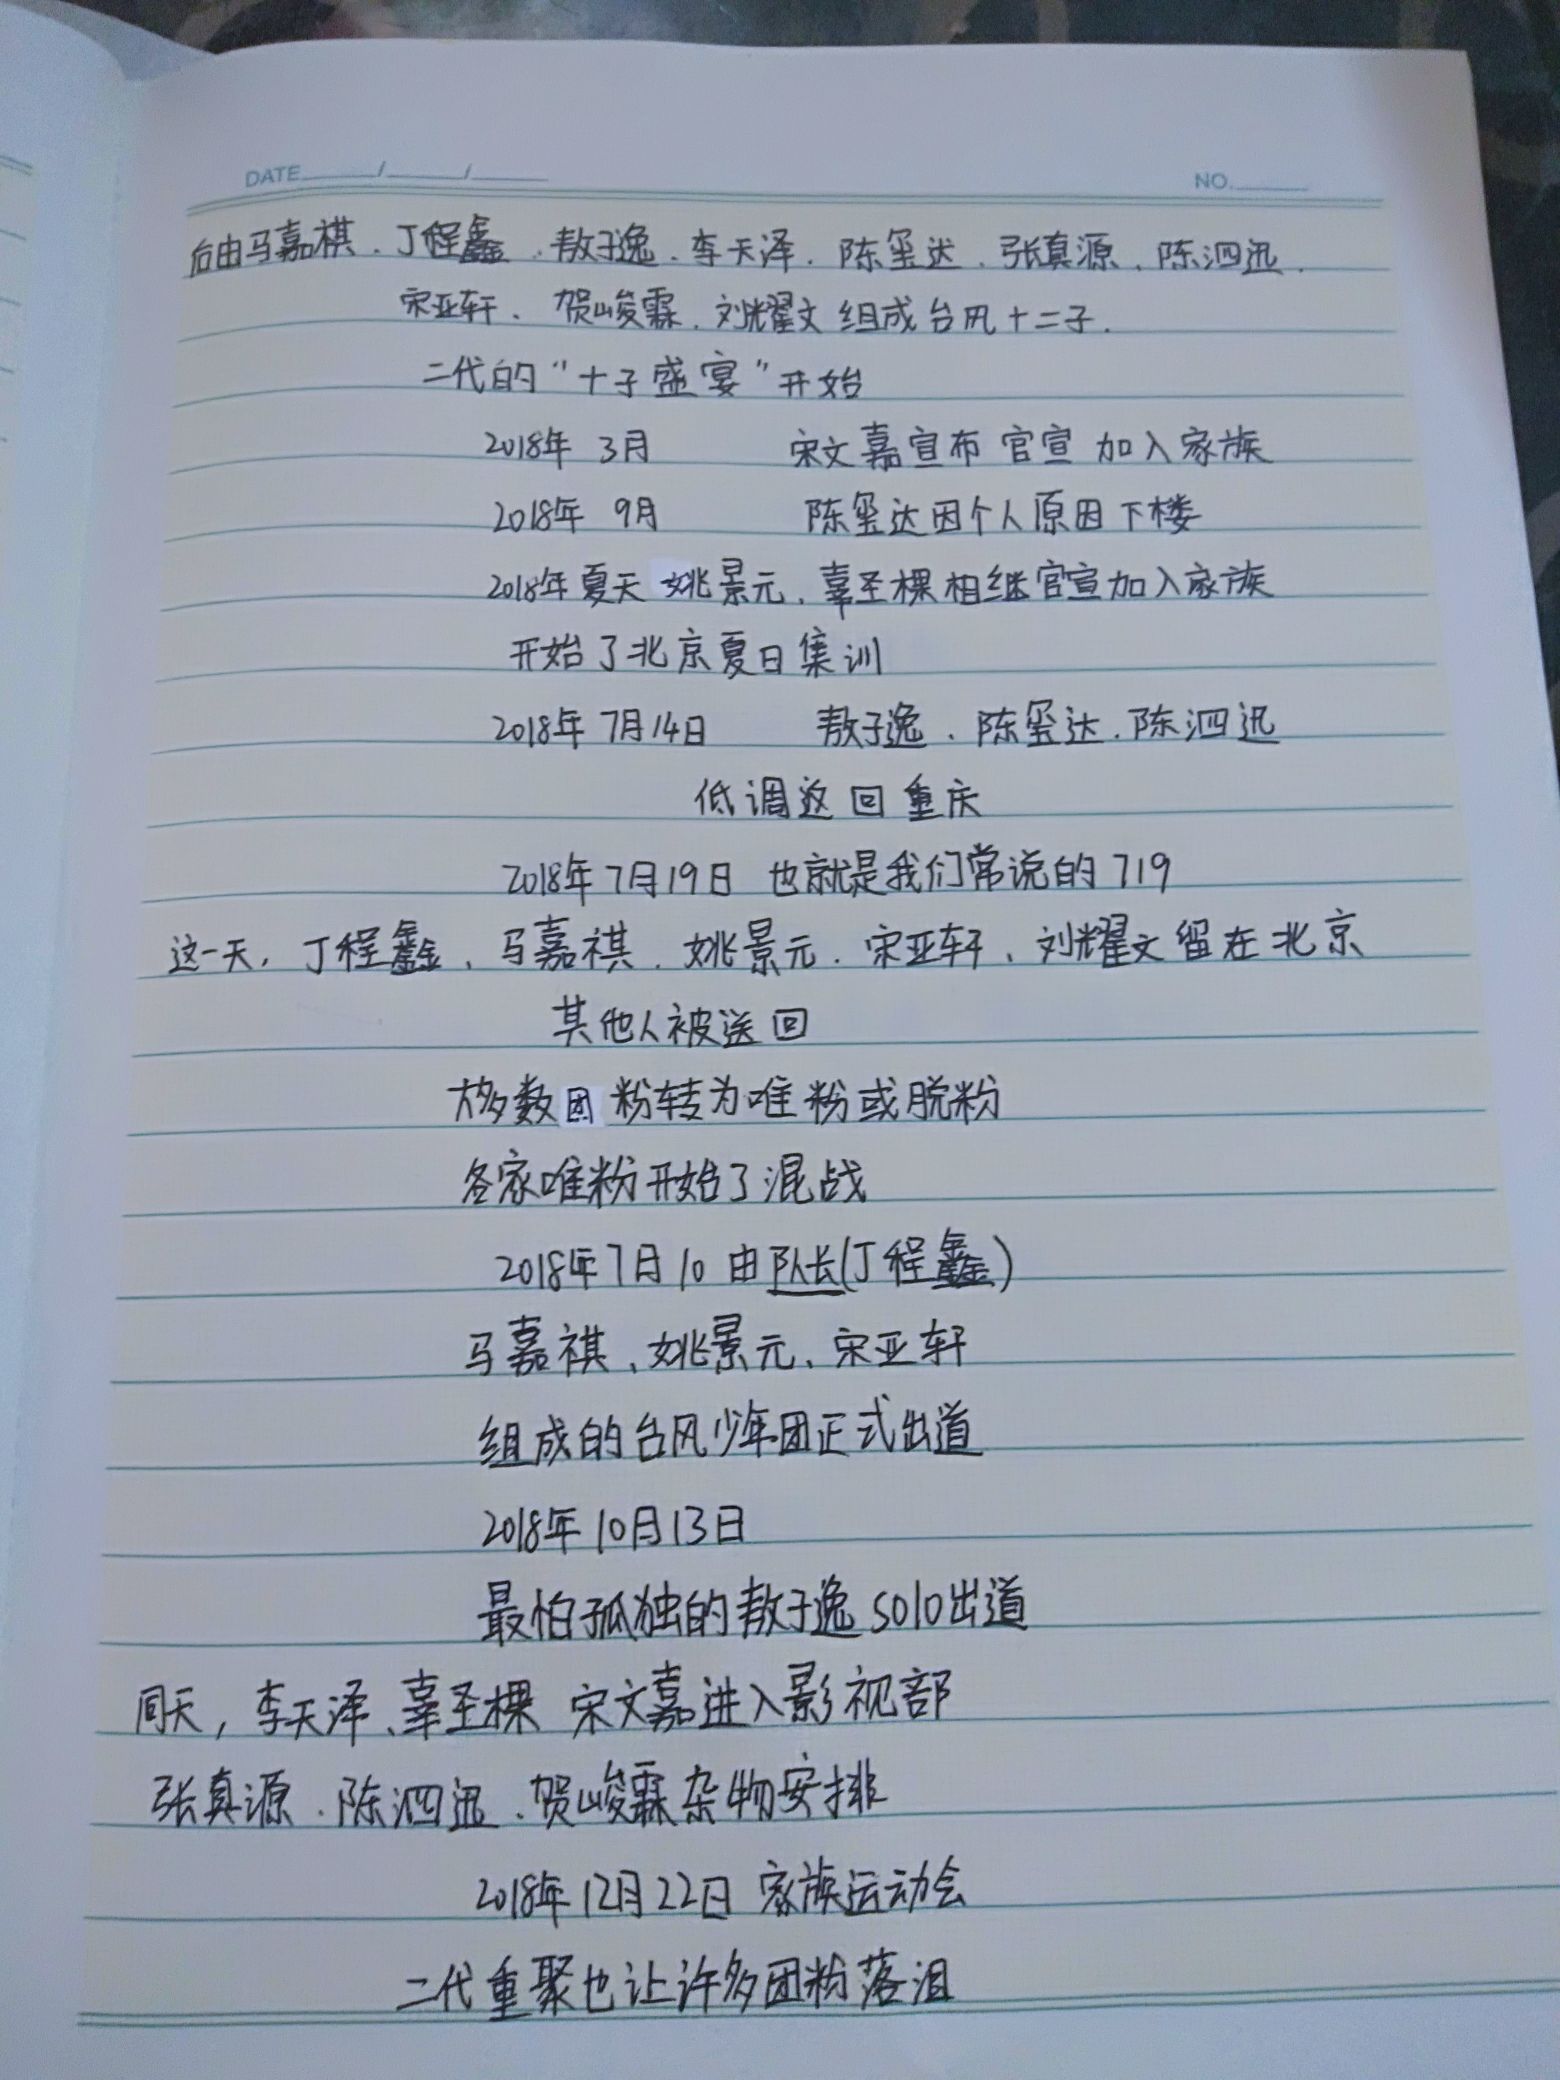 DATE / /
NO.
后由马嘉祺、丁程鑫、敖子逸、李天泽、陈玺达、张真源、陈泗迅、
宋亚轩、贺峻霖、刘耀文组成台风十二子.
二代的“十子盛宴”开始
2018年 3月 宋文嘉宣布官宣加入家族
2018年 9月 陈玺达因个人原因下楼
2018年夏天 姚景元、辜圣棵相继官宣加入家族
开始了北京夏日集训
2018年7月14日 敖子逸、陈玺达、陈泗迅
低调返回重庆
2018年7月19日 也就是我们常说的719
这一天,丁程鑫、马嘉祺、姚景元、宋亚轩、刘耀文留在北京
其他人被送回
大多数团粉转为唯粉或脱粉
各家唯粉开始了混战
2018年7月10由队长(丁程鑫)
马嘉祺、姚景元、宋亚轩
组成的台风少年团正式出道
2018年10月13日
最怕孤独的敖子逸solo出道
同天,李天泽、辜圣棵 宋文嘉进入影视部
张真源、陈泗迅、贺峻霖杂物安排
2018年12月22日 家族运动会
二代重聚也让许多团粉落泪